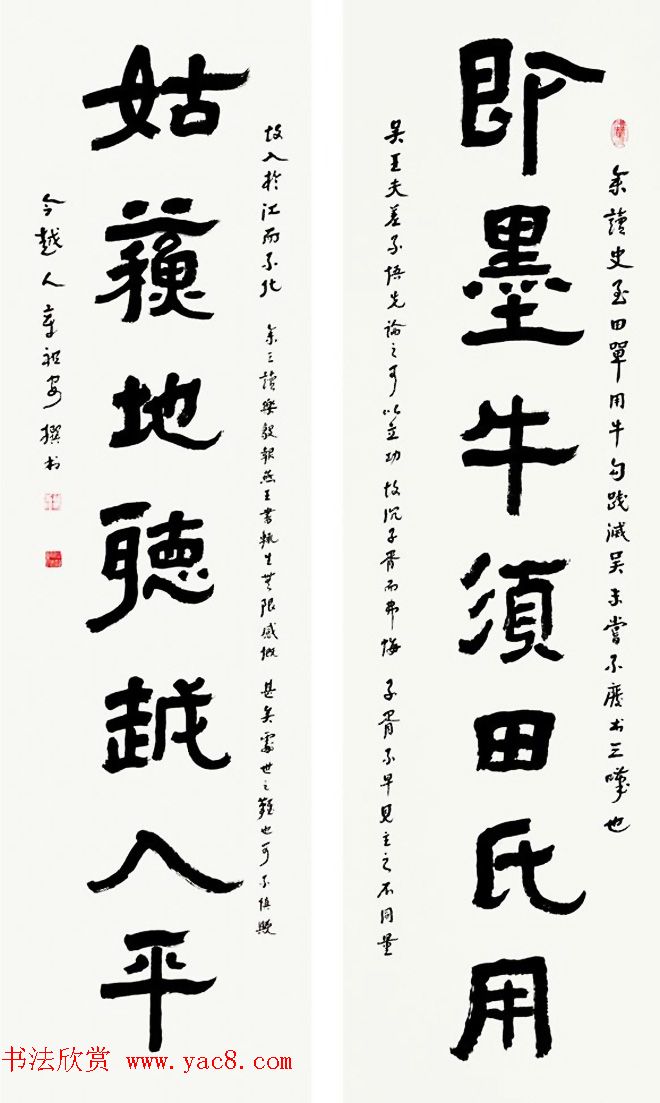 余讀史至田單用牛勾踐滅吳未嘗不廢書三嘆也
即墨牛須田氏用
吳王夫差不悟先論之可以立功故沉子胥而弗悔子胥不早見主之不同量
故入於江而不化 余三讀樂毅報燕王書輒生無限感慨甚矣處世之難也可不慎歟
姑蘓地聽越人平
今越人章祖安撰書
书法欣赏 www.yac8.com